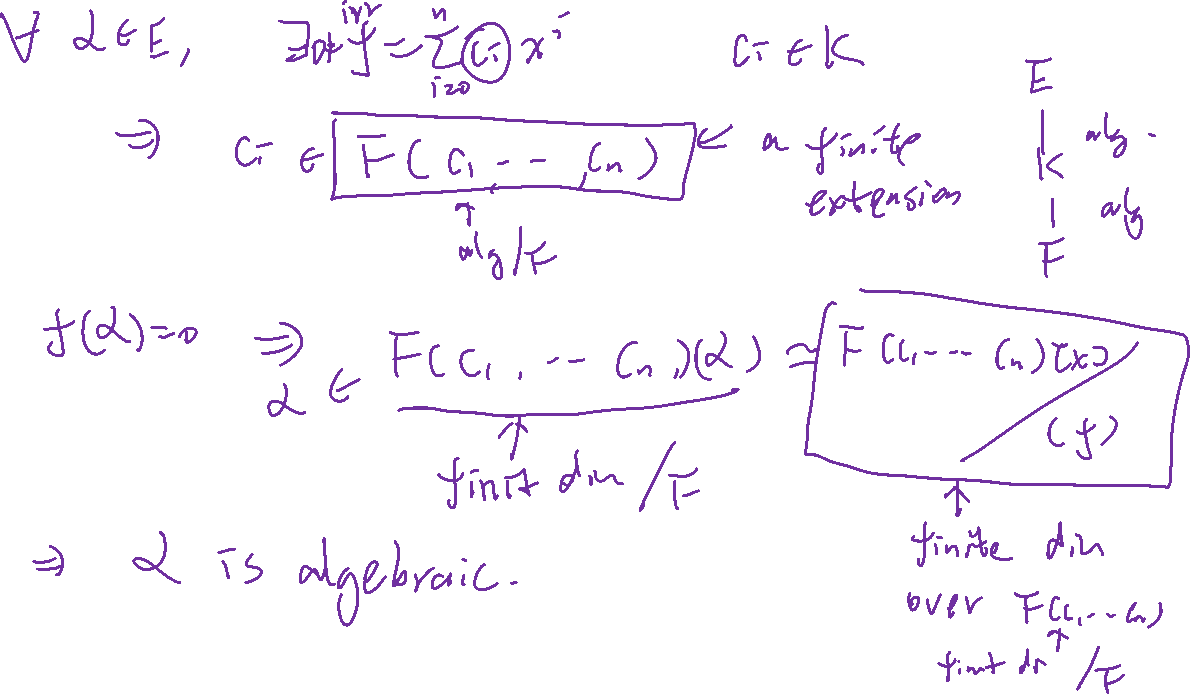 ∀ α ∈ E, ∃ 0≠ f irr = Σ_{i=0}^{n} c_i x^i   c_i ∈ K
⇒ c_i ∈ F(c_1 -- , c_n) ← a finite extension
↑
alg/F
E
| alg.
K
| alg
F
f(α)=0 ⇒ α ∈ F(c_1, -- c_n)(α) ≃ F(c_1 --- c_n)[x] / (f)
↑
finit dim /F
↑
finite dim
over F(c_1, -- c_n)
↑
finit di /F
⇒ α is algebraic.